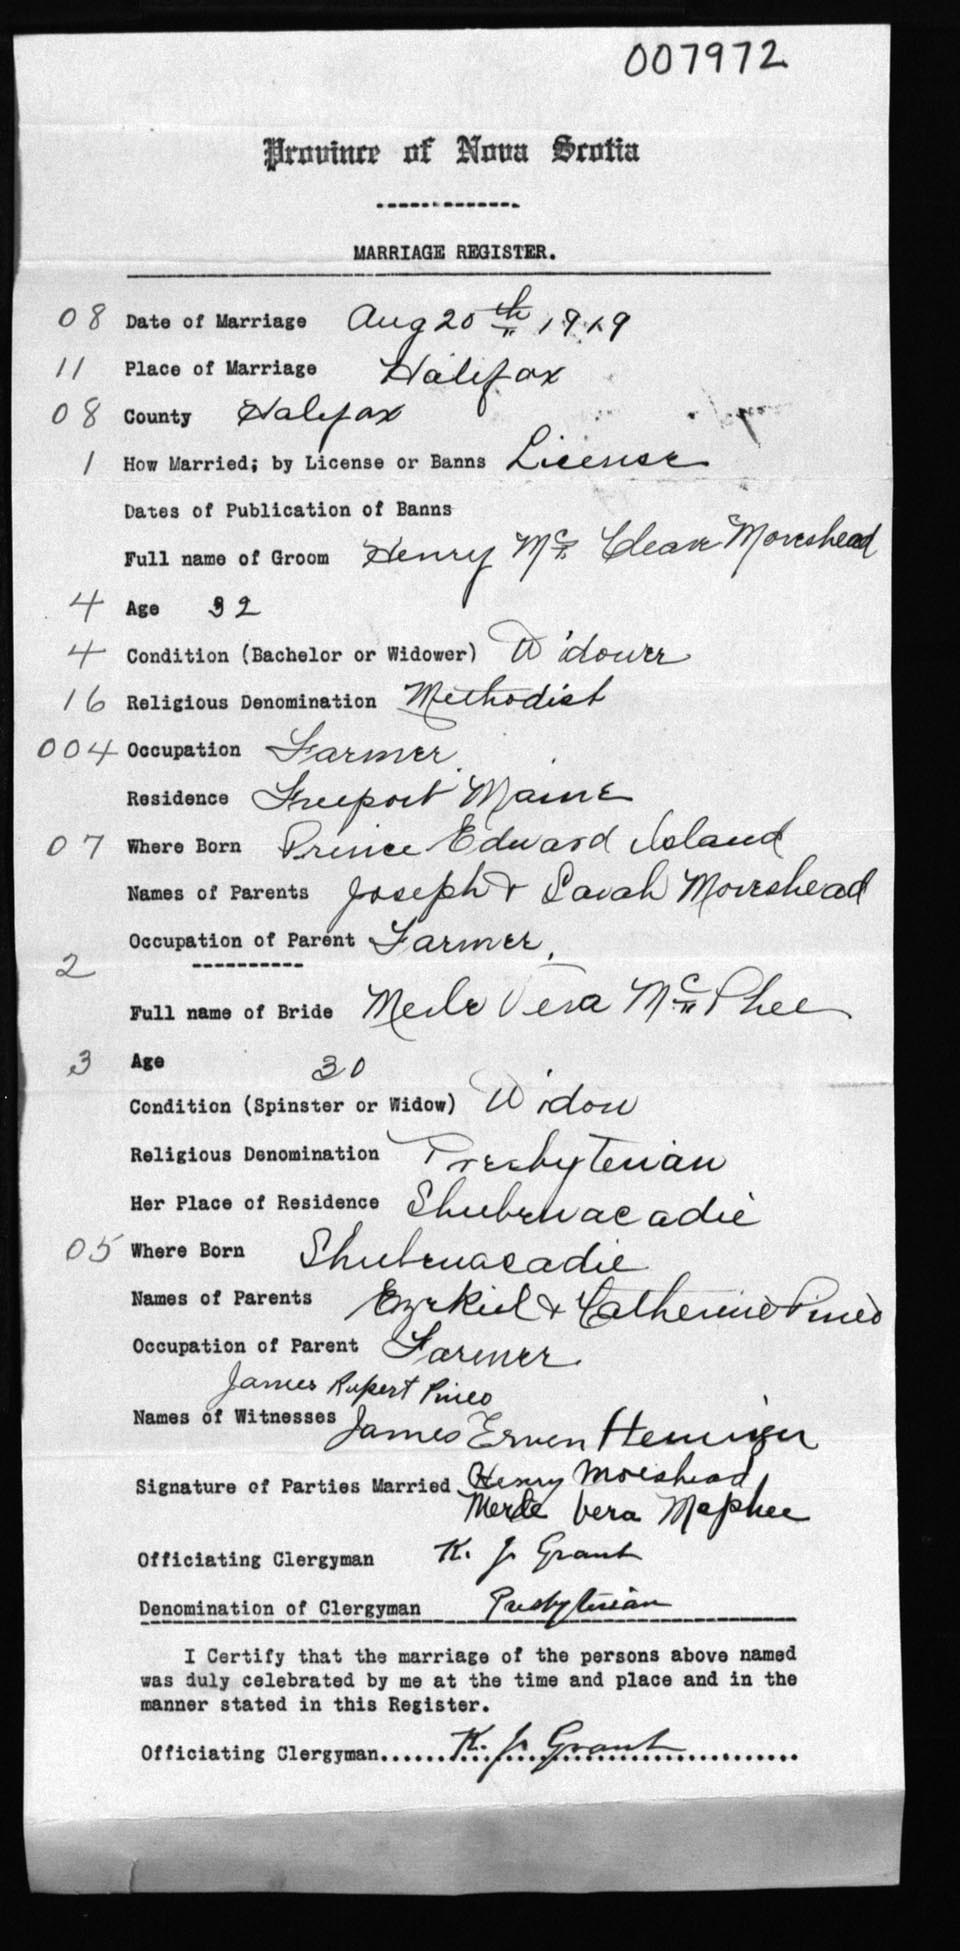 007972
Province of Nova Scotia
MARRIAGE REGISTER.
08 Date of Marriage Aug 20th 1919
11 Place of Marriage Halifax
08 County Halifax
1 How Married; by License or Banns License
Dates of Publication of Banns
Full name of Groom Henry Mc Cleave Moreshead
4 Age 32
4 Condition (Bachelor or Widower) Widower
16 Religious Denomination Methodist
004 Occupation Farmer
Residence Freeport Maine
07 Where Born Prince Edward Island
Names of Parents Joseph & Sarah Moreshead
Occupation of Parent Farmer.
2
Full name of Bride Merle Vera McPhee
3 Age 30
Condition (Spinster or Widow) Widow
Religious Denomination Presbyterian
Her Place of Residence Shubenacadie
05 Where Born Shubenacadie
Names of Parents Ezekiel & Catherine Pineo
Occupation of Parent Farmer
James Rupert Pineo
Names of Witnesses James Erwen
Signature of Parties Married Henry Moreshead
Merle Vera Macphee
Officiating Clergyman K. J. Grant
Denomination of Clergyman Presbyterian
I Certify that the marriage of the persons above named
was duly celebrated by me at the time and place and in the
manner stated in this Register.
Officiating Clergyman K. J. Grant